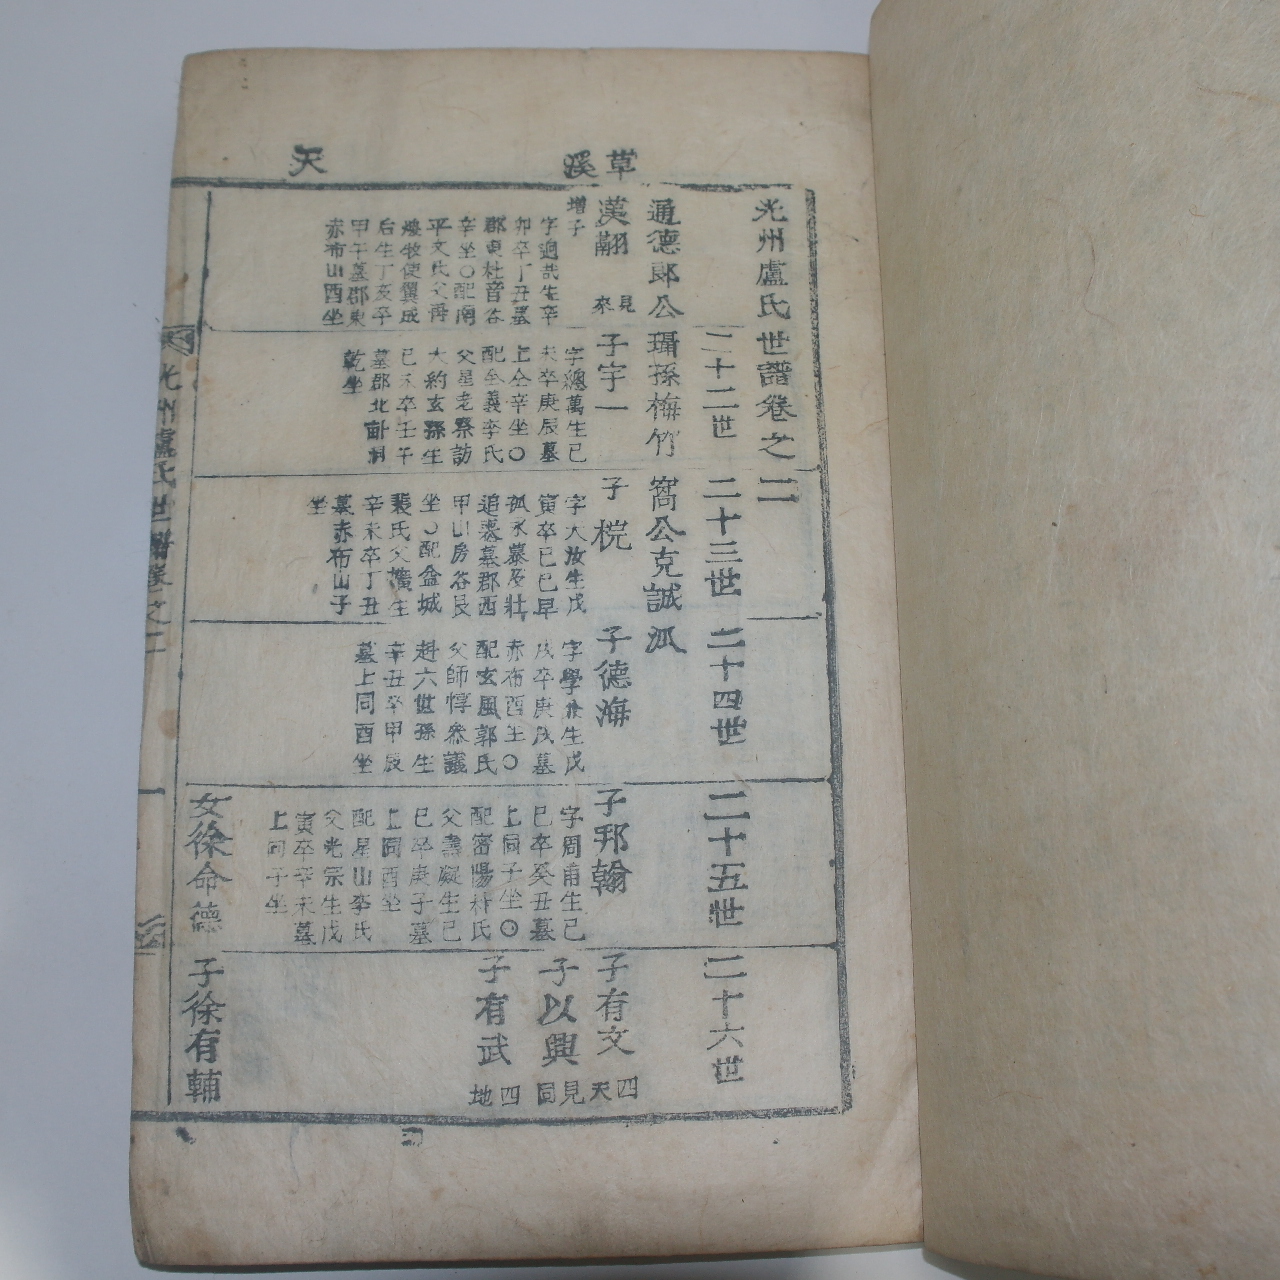 草溪
天
光州盧氏世譜卷之二
二十二世
二十三世
二十四世
二十五世
二十六世
通德郞公
瑻孫梅竹
窩公克誠
派
漢翮
見來
增子
字逈哉生辛
卯卒丁丑墓
郡東杜音谷
辛坐○配南
平文氏父
牧使翼成
后生丁亥卒
甲午墓郡東
赤布山酉坐
子宇一
字總萬生己
未卒庚辰墓
上仝辛坐○
配全義李氏
父星老察訪
大約玄孫生
己未卒壬午
墓郡北
乾坐
子梡
字大汝生戊
寅卒己巳早
孤永慕及壯
追喪墓郡西
甲山房谷艮
坐○配盆城
裴氏父生
辛未卒丁丑
墓赤布山子
坐
子德海
字學生戊
戌卒庚戌墓
赤布酉坐○
配玄風郭氏
父師惇叅議
赶六世孫生
辛丑卒甲辰
墓上同酉坐
子邦翰
字周甫生己
巳卒癸丑墓
上同子坐○
配密陽朴氏
父壽凝生己
巳卒庚子墓
上同酉坐
配星山李氏
父光宗生戊
寅卒辛未墓
上同子坐
女徐命德
子有文
四天
子以興
見同
子有武
四地
子徐有輔
光州盧氏世譜卷之二
一